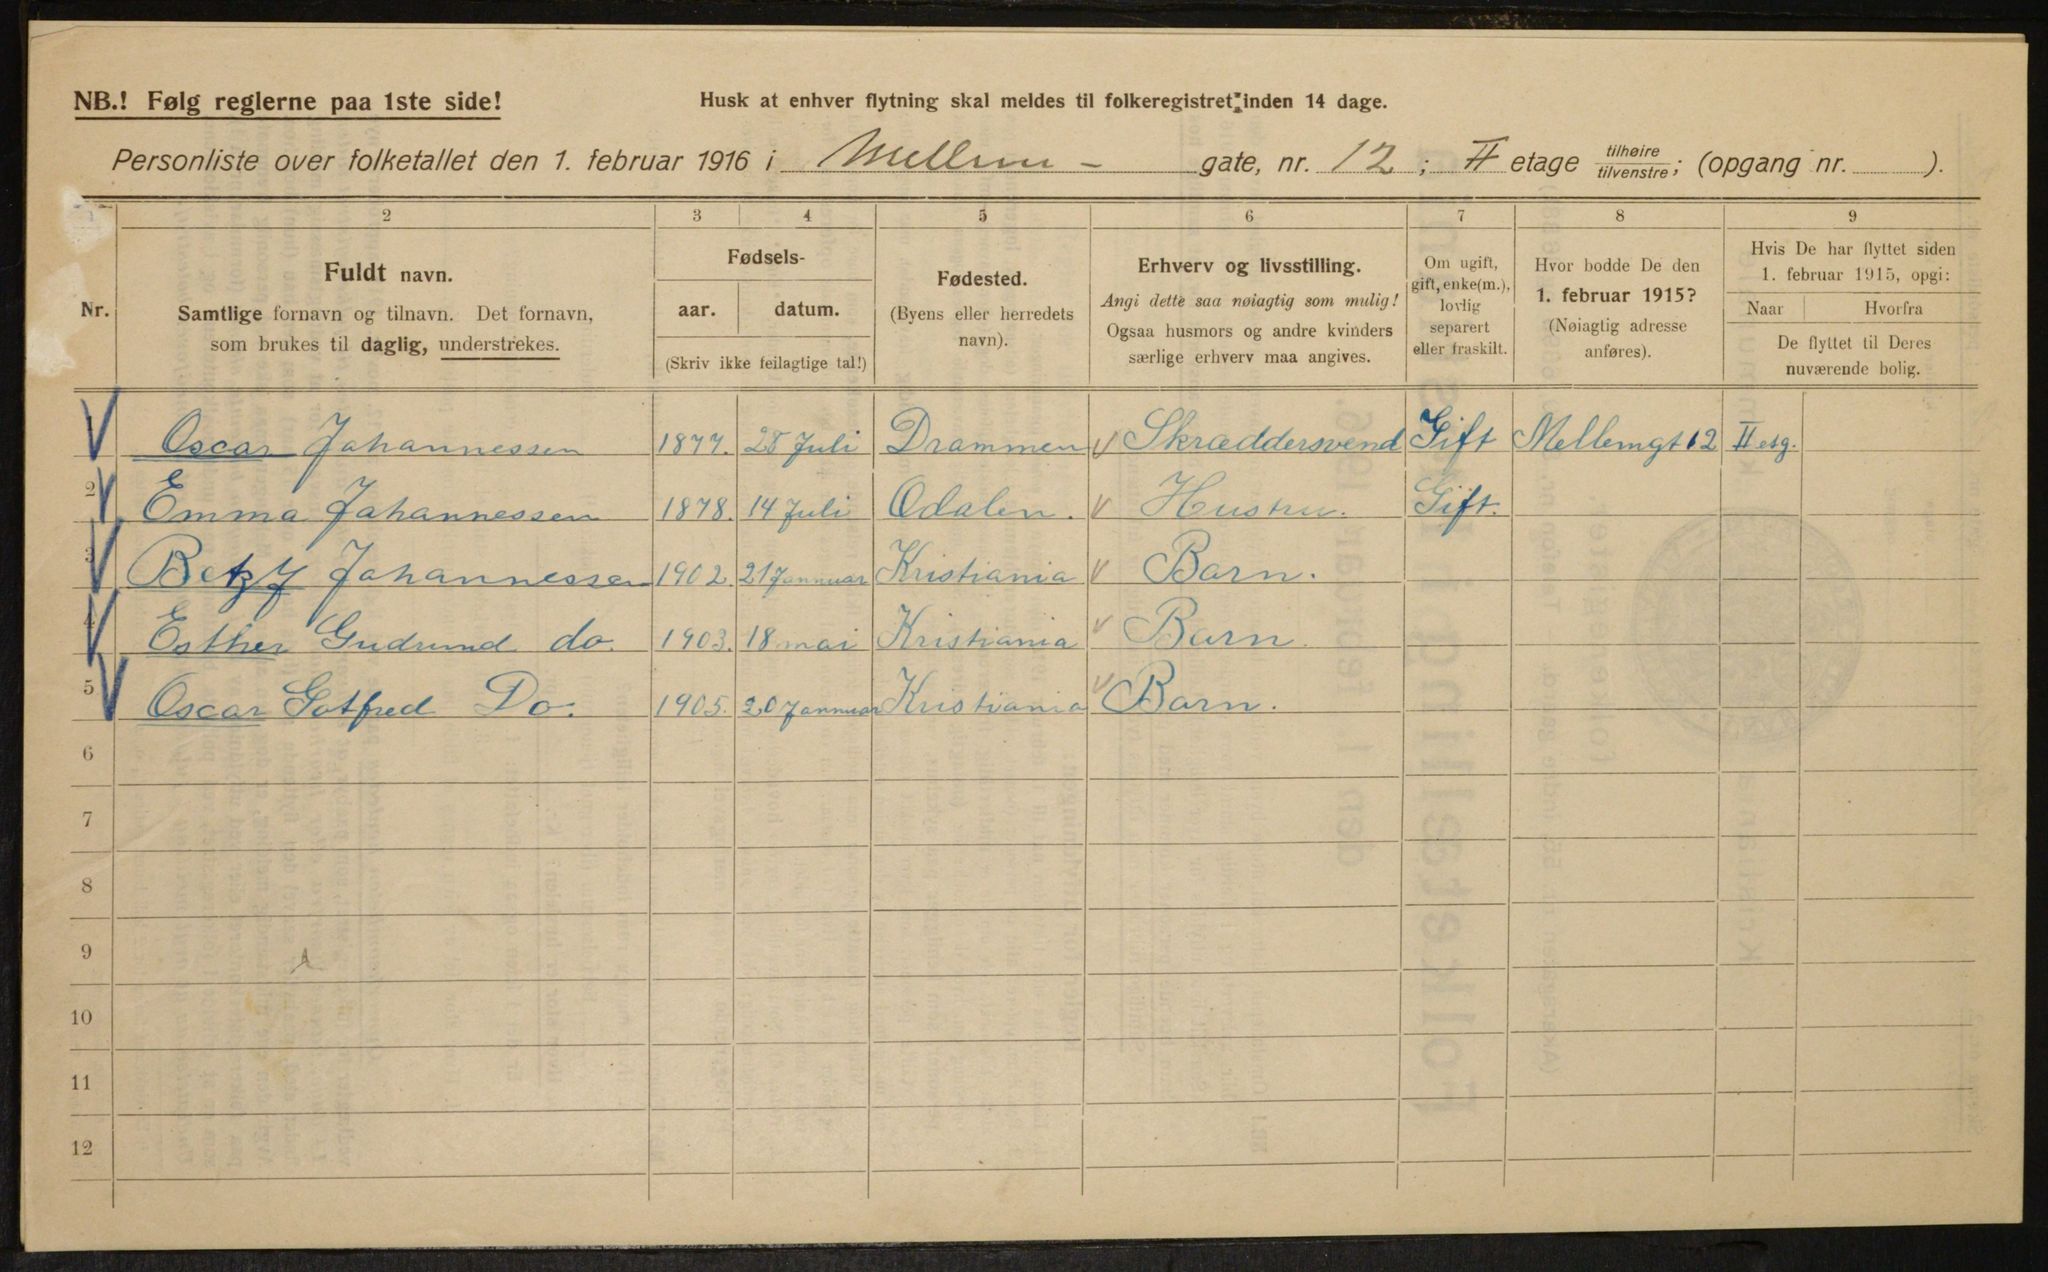 NB.! Følg reglerne paa 1ste side!
Husk at enhver flytning skal meldes til folkeregistret inden 14 dage.
Personliste over folketallet den 1. februar 1916 i Mellem - gate, nr. 12; II etage tilhøire/tilvenstre; (opgang nr. ).
2 3 4 5 6 7 8 9
Nr.
Fuldt navn.
Samtlige fornavn og tilnavn. Det fornavn,
som brukes til daglig, understrekes.
Fødsels-
aar. datum.
(Skriv ikke feilagtige tal!)
Fødested.
(Byens eller herredets
navn).
Erhverv og livsstilling.
Angi dette saa nøiagtig som mulig!
Ogsaa husmors og andre kvinders
særlige erhverv maa angives.
Om ugift,
gift, enke(m.),
lovlig
separert
eller fraskilt.
Hvor bodde De den
1. februar 1915?
(Nøiagtig adresse
anføres).
Hvis De har flyttet siden
1. februar 1915, opgi:
Naar Hvorfra
De flyttet til Deres
nuværende bolig.
Oscar Johannessen 1877. 28 Juli Drammen Skræddersvend Gift Mellemgt 12 II etg.
2 Emma Johannessen 1878. 14 Juli Odalen. Hustru. Gift.
3 Betzy Johannessen 1902. 21 Jannuar Kristiania Barn.
4 Esther Gudrund do. 1903. 18 mai Kristiania Barn
5 Oscar Gotfred Do. 1905. 20 Jannuar Kristiania Barn.
6
7
8
9
10
11
12